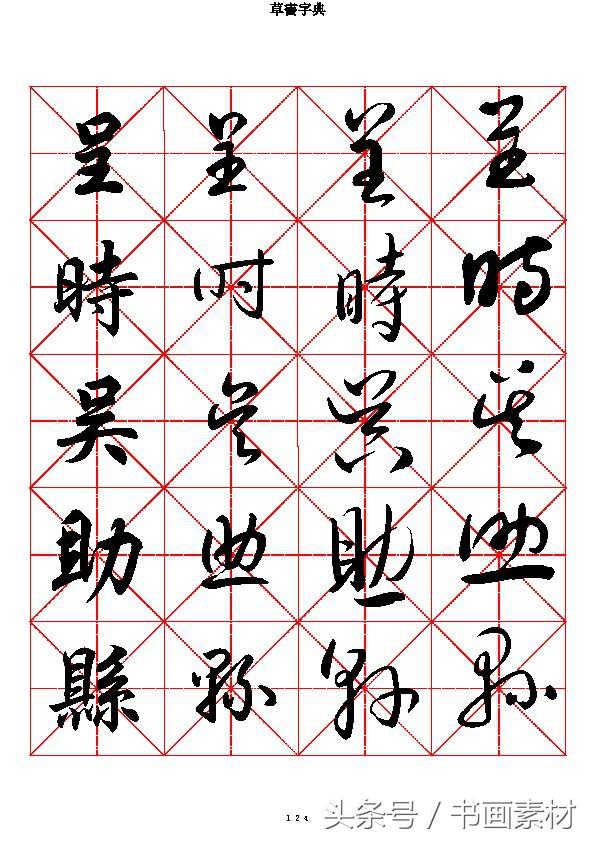 草書字典
呈 呈 呈 呈
時 時 時 時
吴 吴 吴 吴
助 助 助 助
縣 縣 縣 縣
124
头条号 / 书画素材